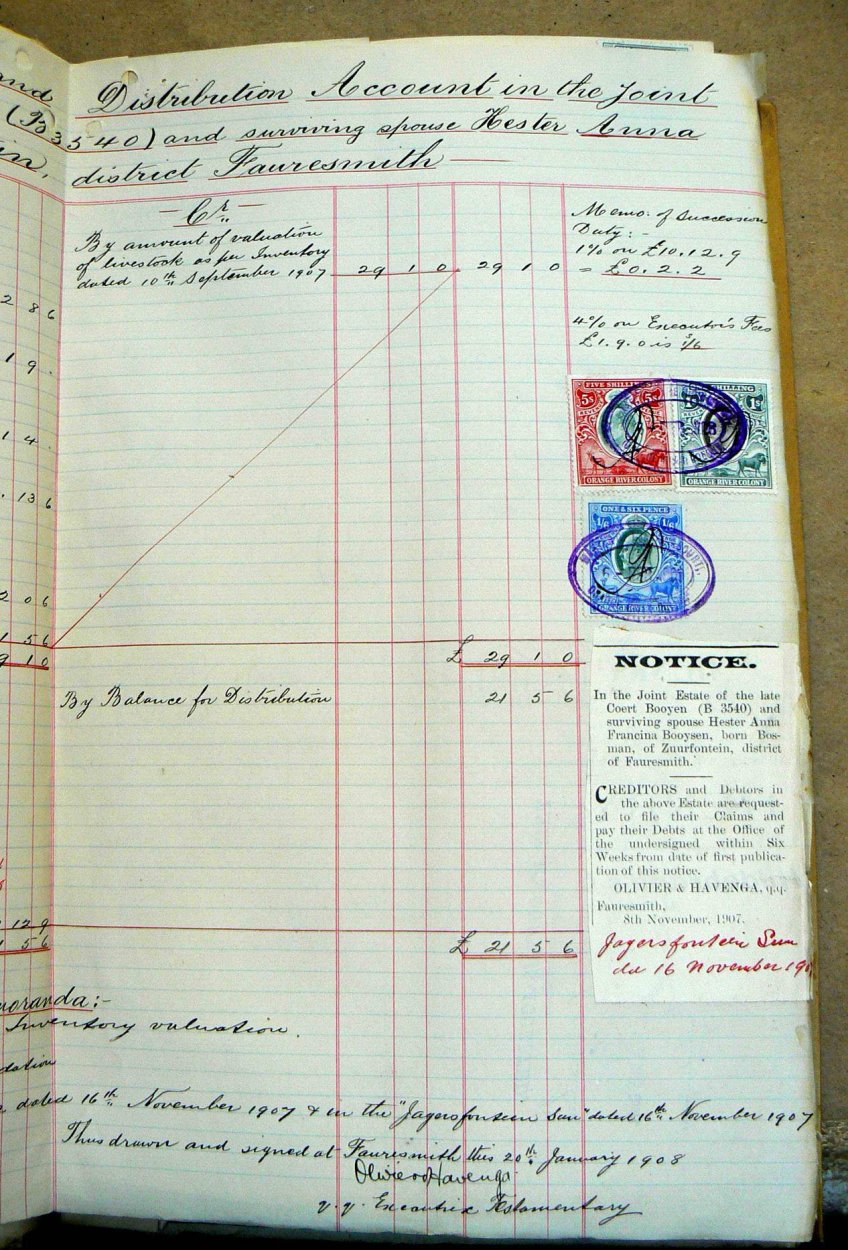 and
(B 3
Distribution Account in the Joint
540) and surviving spouse Hester Anna
district Fauresmith
Cr
By amount of valuation
of livestock as per Inventory
dated 10th September 1907 29 1 0 29 1 0
Memo. of Succession
Duty:-
1% on £10.12.9
= £0.2.2
4% on Executor's Fees
£1.9.0 is 1/6
2 8 6
1 9 .
1 4 .
. 13 6
2 0 6
1 5 6
9 1 0
FIVE SHILLINGS
5s 5s
ORANGE RIVER COLONY
SHILLING
1s
ORANGE RIVER COLONY
ONE & SIX PENCE
1/6 1/6
ORANGE RIVER COLONY
£ 29 1 0
By Balance for Distribution 21 5 6
NOTICE.
In the Joint Estate of the late
Coert Booyen (B 3540) and
surviving spouse Hester Anna
Francina Booysen, born Bos-
man, of Zuurfontein, district
of Fauresmith.
CREDITORS and Debtors in
the above Estate are request-
ed to file their Claims and
pay their Debts at the Office of
the undersigned within Six
Weeks from date of first publica-
tion of this notice.
OLIVIER & HAVENGA, q.q.
Fauresmith,
8th November, 1907.
Jagersfontein Sun
dd 16 November 190
12 9
1 5 6
£ 21 5 6
moranda:-
Inventory valuation.
dation
dated 16th November 1907 & in the "Jagersfontein Sun" dated 16th November 1907
Thus drawn and signed at Fauresmith this 20th January 1908
Olivier & Havenga
q.q. Executrix Testamentary